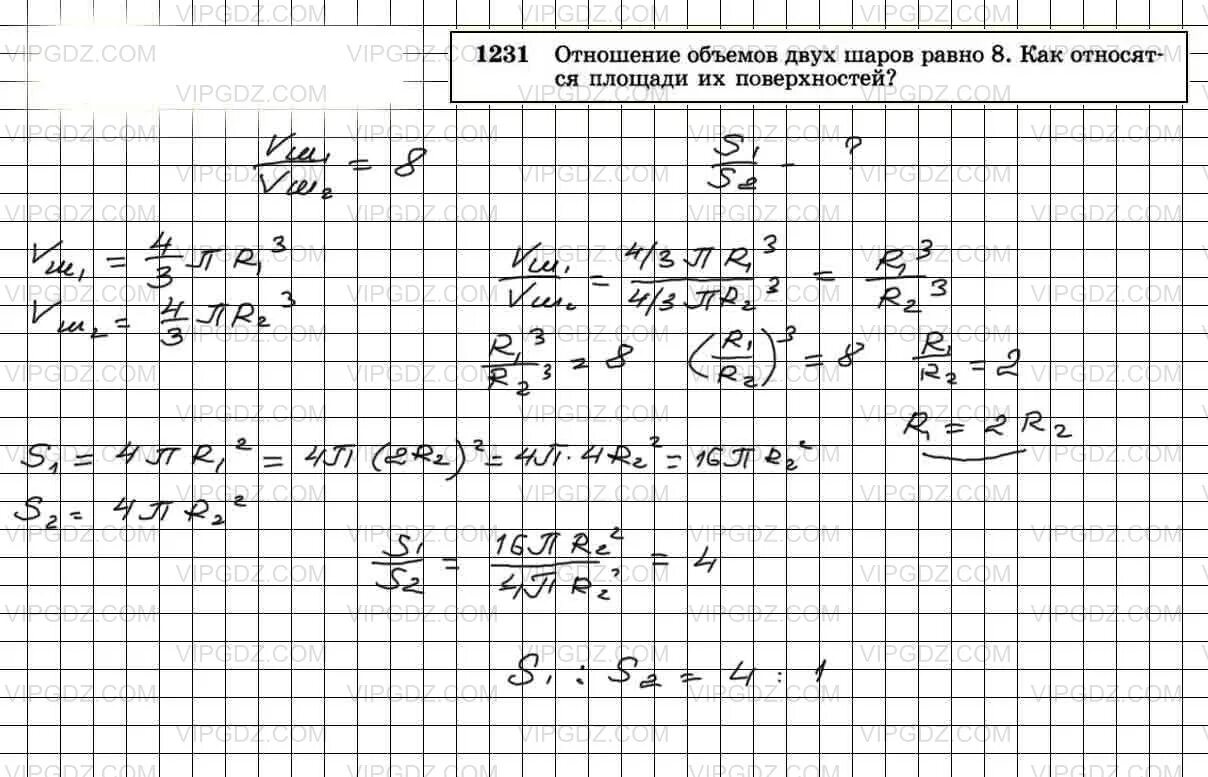 1231 Отношение объемов двух шаров равно 8. Как относят-
ся площади их поверхностей?
Vш₁/Vш₂ = 8
S₁/S₂ - ?
Vш₁ = 4/3 π R₁³
Vш₂ = 4/3 π R₂³
Vш₁/Vш₂ = (4/3 π R₁³)/(4/3 π R₂³) = R₁³/R₂³
R₁³/R₂³ = 8 (R₁/R₂)³ = 8 R₁/R₂ = 2
R₁ = 2R₂
S₁ = 4πR₁² = 4π(2R₂)² = 4π·4R₂² = 16πR₂²
S₂ = 4πR₂²
S₁/S₂ = 16πR₂²/4πR₂² = 4
S₁ : S₂ = 4 : 1
VIPGDZ.COM